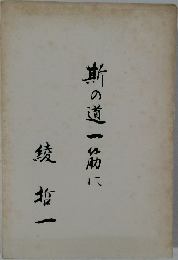 斯の道一筋に
綾哲一